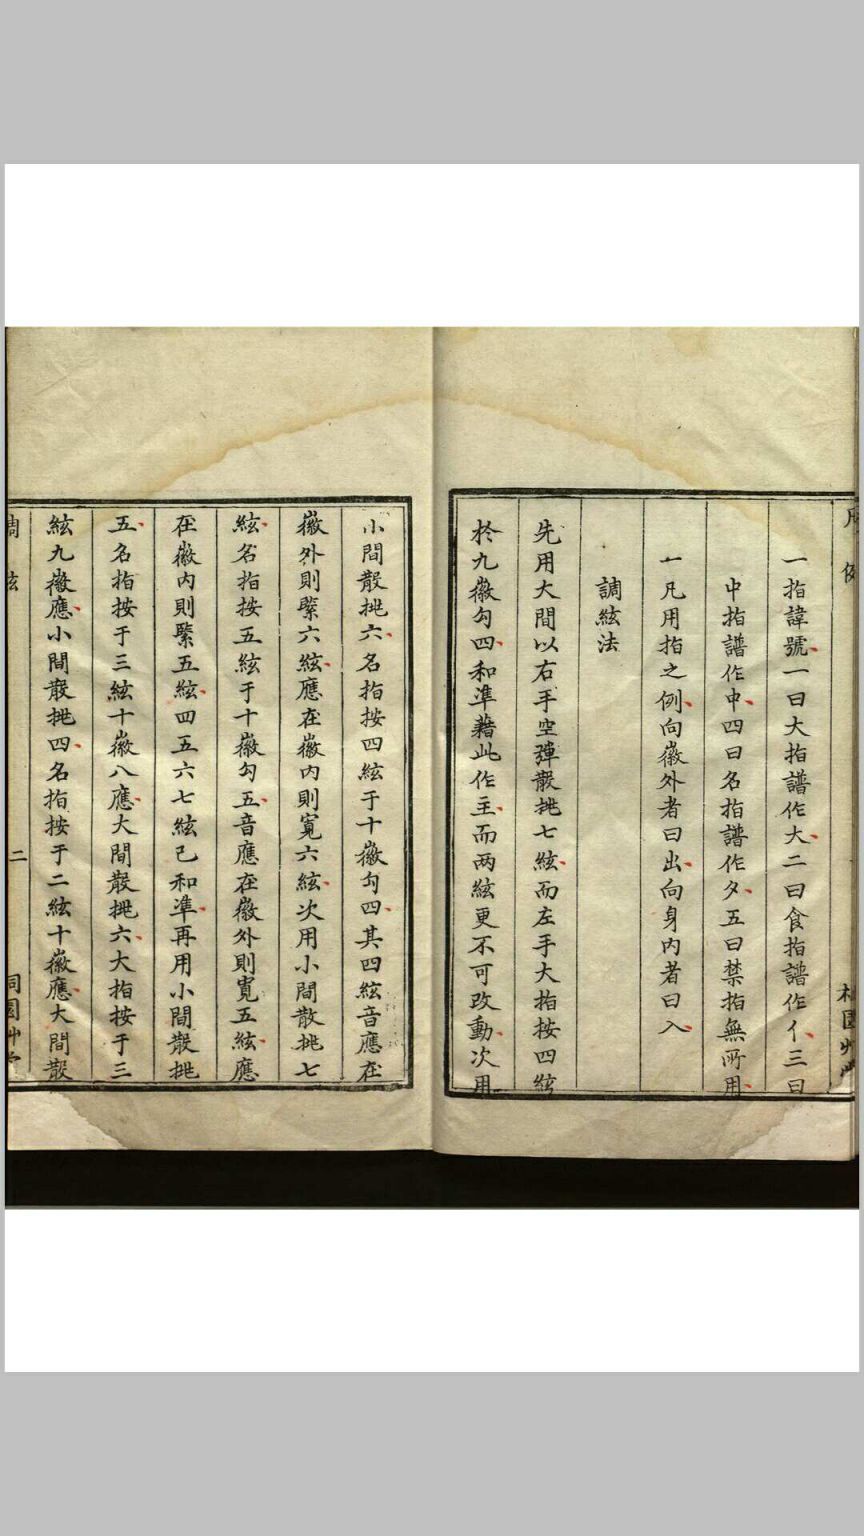 一指諱號一曰大指譜作大二曰食指譜作亻三曰
中指譜作中四曰名指譜作夕五曰禁指無所用
一凡用指之例向徽外者曰出向身內者曰入
調絃法
先用大間以右手空彈散挑七絃而左手大指按四絃
於九徽勾四和準藉此作主而两絃更不可改動次用
小間散挑六名指按四絃于十徽勾四其四絃音應在
徽外則緊六絃應在徽內則寬六絃次用小間散挑七
絃名指按五絃于十徽勾五音應在徽外則寬五絃應
在徽內則緊五絃四五六七絃已和準再用小間散挑
五名指按于三絃十徽八應大間散挑六大指按于三
絃九徽應小間散挑四名指按于二絃十徽應大間散
二